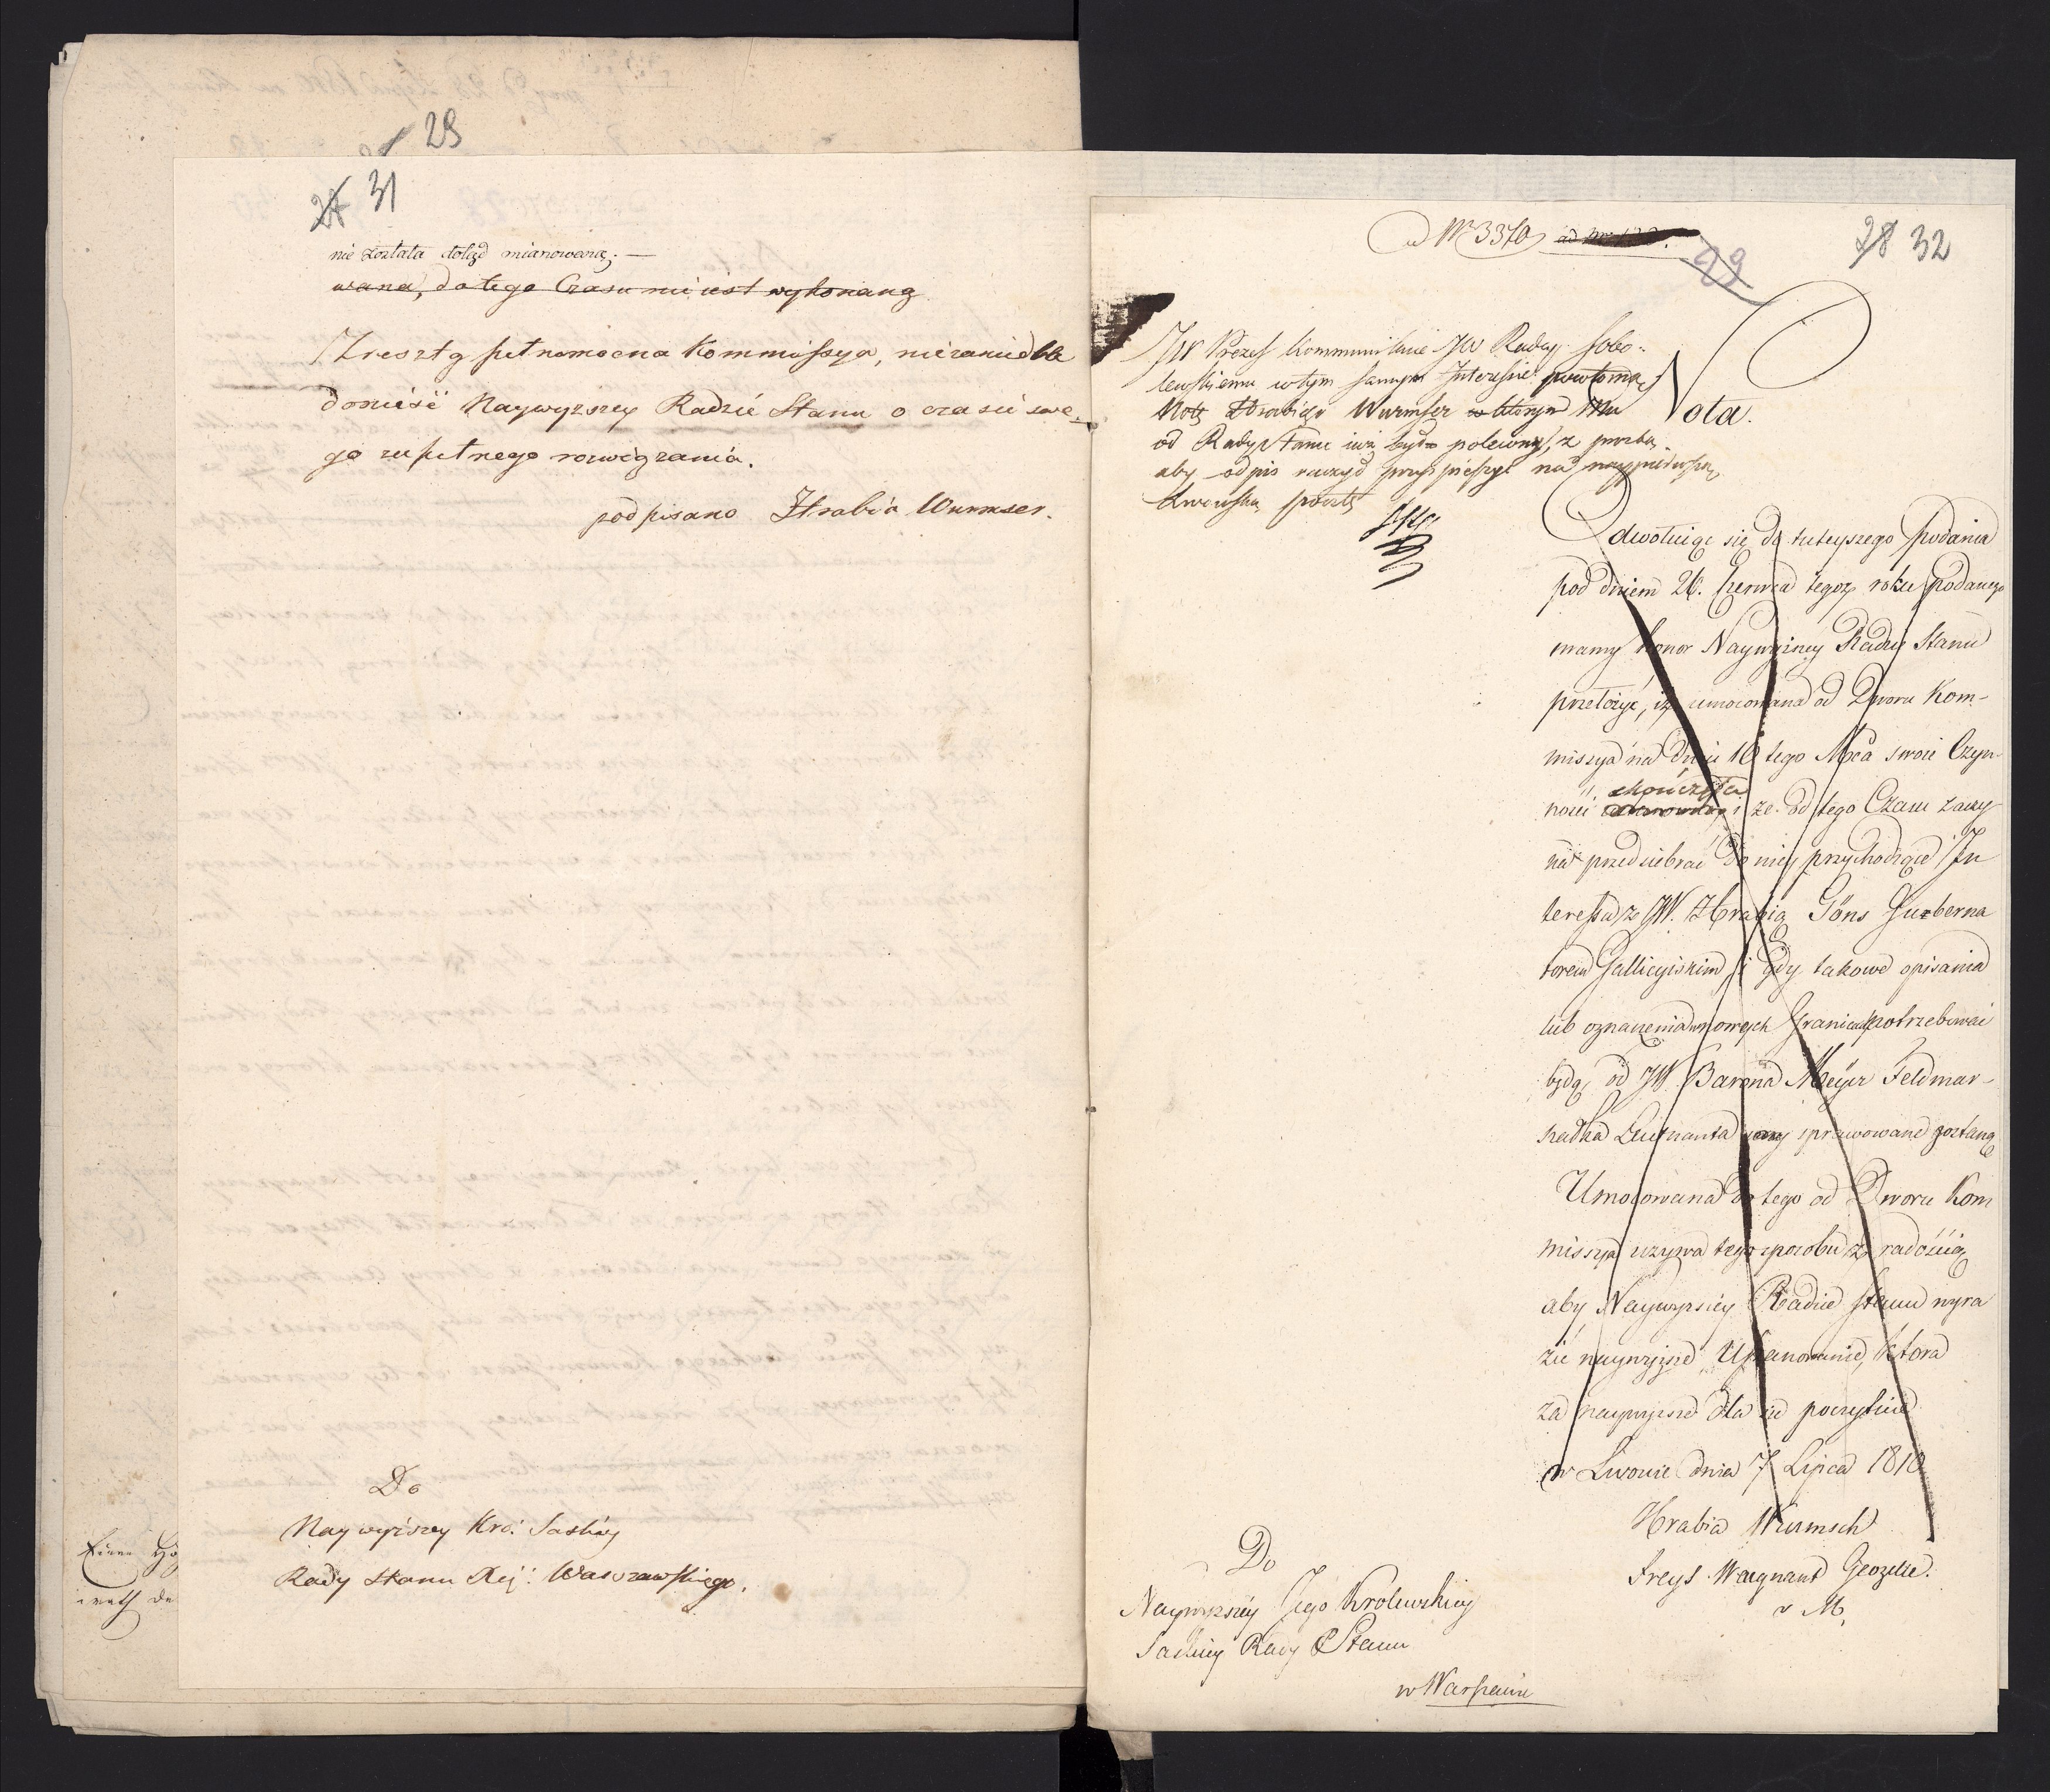 29
31
nie została dotąd mianowaną; —
wana, do tego Czasu nie iest wykonaną
Zresztą pełnomocna Kommissya, niezaniedba
donieść Naywyzszey Radzie Stanu o czasie swe-
go zupełnego rozwiązania.
podpisano Hrabia Wurmser.
Do
Naywyższey Kró: Saskiey
Rady Stanu Xię: Warszawskiego.
ad Nr 3370
29
28 32
JW Prezes kommunikuie JW Radcy Sobo-
lewskiemu w tym samym Interesie powtorną
Notę Hrabiego Wurmser w którym Mu
od Rady Stanu iuż być polecony, z prozbą
aby odpis raczył przyspieszyć na naypierwszą
Lwowską pocztę
Nota.
Odwołuiąc się do tuteyszego podania
pod dniem 26. Czerwca tegoż roku podanego
mamy honor Naywyższey Radzie Stanu
przełożyć, iż umocowana od Dworu Kom-
missya na dniu 10 tego Mca swoie Czyn-
ności skończyła i ze od tego Czasu zaczy-
na przedsiebrać do niey przychodzące In
teressa z JW. Hrabią Göns Guberna
torem Gallicyiskim, i gdy takowe opisania
lub oznaczenia nowych Granic potrzebować
będą, od JW. Barona Meyer Feldmar-
szałka Leutnanta sprawowane zostaną
Umocowana do tego od Dworu Kom
missya uzywa tego sposobu z radością
aby Naywyzszey Radzie Stanu wyra
zić naywyższe Uszanowanie, ktora
za naywyzsze dla się poczytuie
w Lwowie dnia 7 Lipca 1810
Hrabia Wurmsch
Do
Naywyzszey Jego Krolewskiey
Saskiey Rady Stanu
w Warszawie